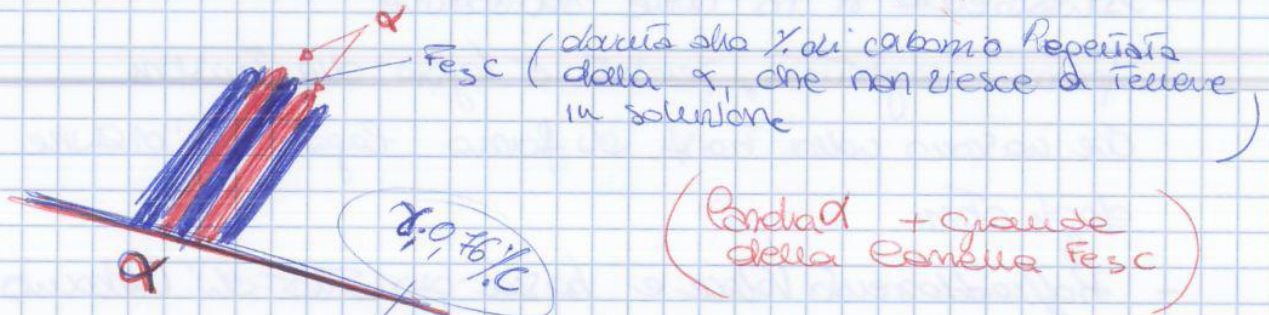 α
Fe3C (dovuta alla % di carbonio Rigettata
dalla α, che non riesce a Tenere
in soluzione)
γ 0,76%C
(lamella α + grande
della lamella Fe3C)
α